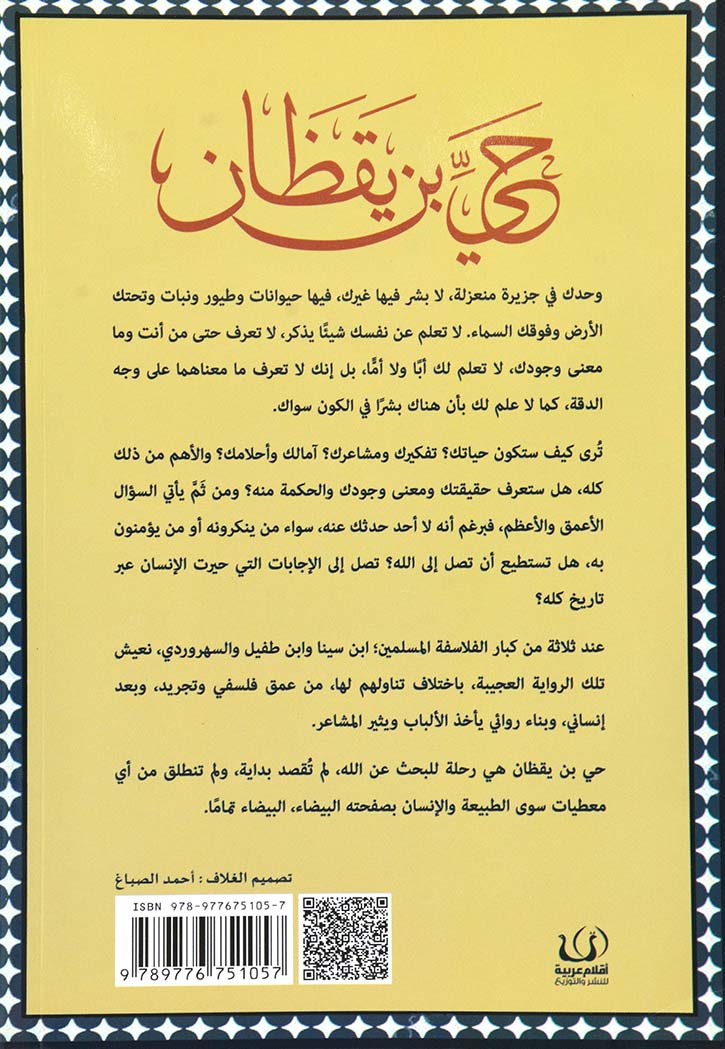 حَيّ بن يَقظَان
وحدك في جزيرة منعزلة، لا بشر فيها غيرك، فيها حيوانات وطيور ونبات وتحتك
الأرض وفوقك السماء. لا تعلم عن نفسك شيئًا يذكر، لا تعرف حتى من أنت وما
معنى وجودك، لا تعلم لك أبًا ولا أمًّا، بل إنك لا تعرف ما معناهما على وجه
الدقة، كما لا علم لك بأن هناك بشرًا في الكون سواك.
تُرى كيف ستكون حياتك؟ تفكيرك ومشاعرك؟ آمالك وأحلامك؟ والأهم من ذلك
كله، هل ستعرف حقيقتك ومعنى وجودك والحكمة منه؟ ومن ثَمَّ يأتي السؤال
الأعمق والأعظم، فبرغم أنه لا أحد حدثك عنه، سواء من ينكرونه أو من يؤمنون
به، هل تستطيع أن تصل إلى الله؟ تصل إلى الإجابات التي حيرت الإنسان عبر
تاريخ كله؟
عند ثلاثة من كبار الفلاسفة المسلمين؛ ابن سينا وابن طفيل والسهروردي، نعيش
تلك الرواية العجيبة، باختلاف تناولهم لها، من عمق فلسفي وتجريد، وبعد
إنساني، وبناء روائي يأخذ الألباب ويثير المشاعر.
حي بن يقظان هي رحلة للبحث عن الله، لم تُقصد بداية، ولم تنطلق من أي
معطيات سوى الطبيعة والإنسان بصفحته البيضاء، البيضاء تمامًا.
تصميم الغلاف: أحمد الصباغ
ISBN 978-977675105-7
9 789776 751057
أقلام عربية
للنشر والتوزيع